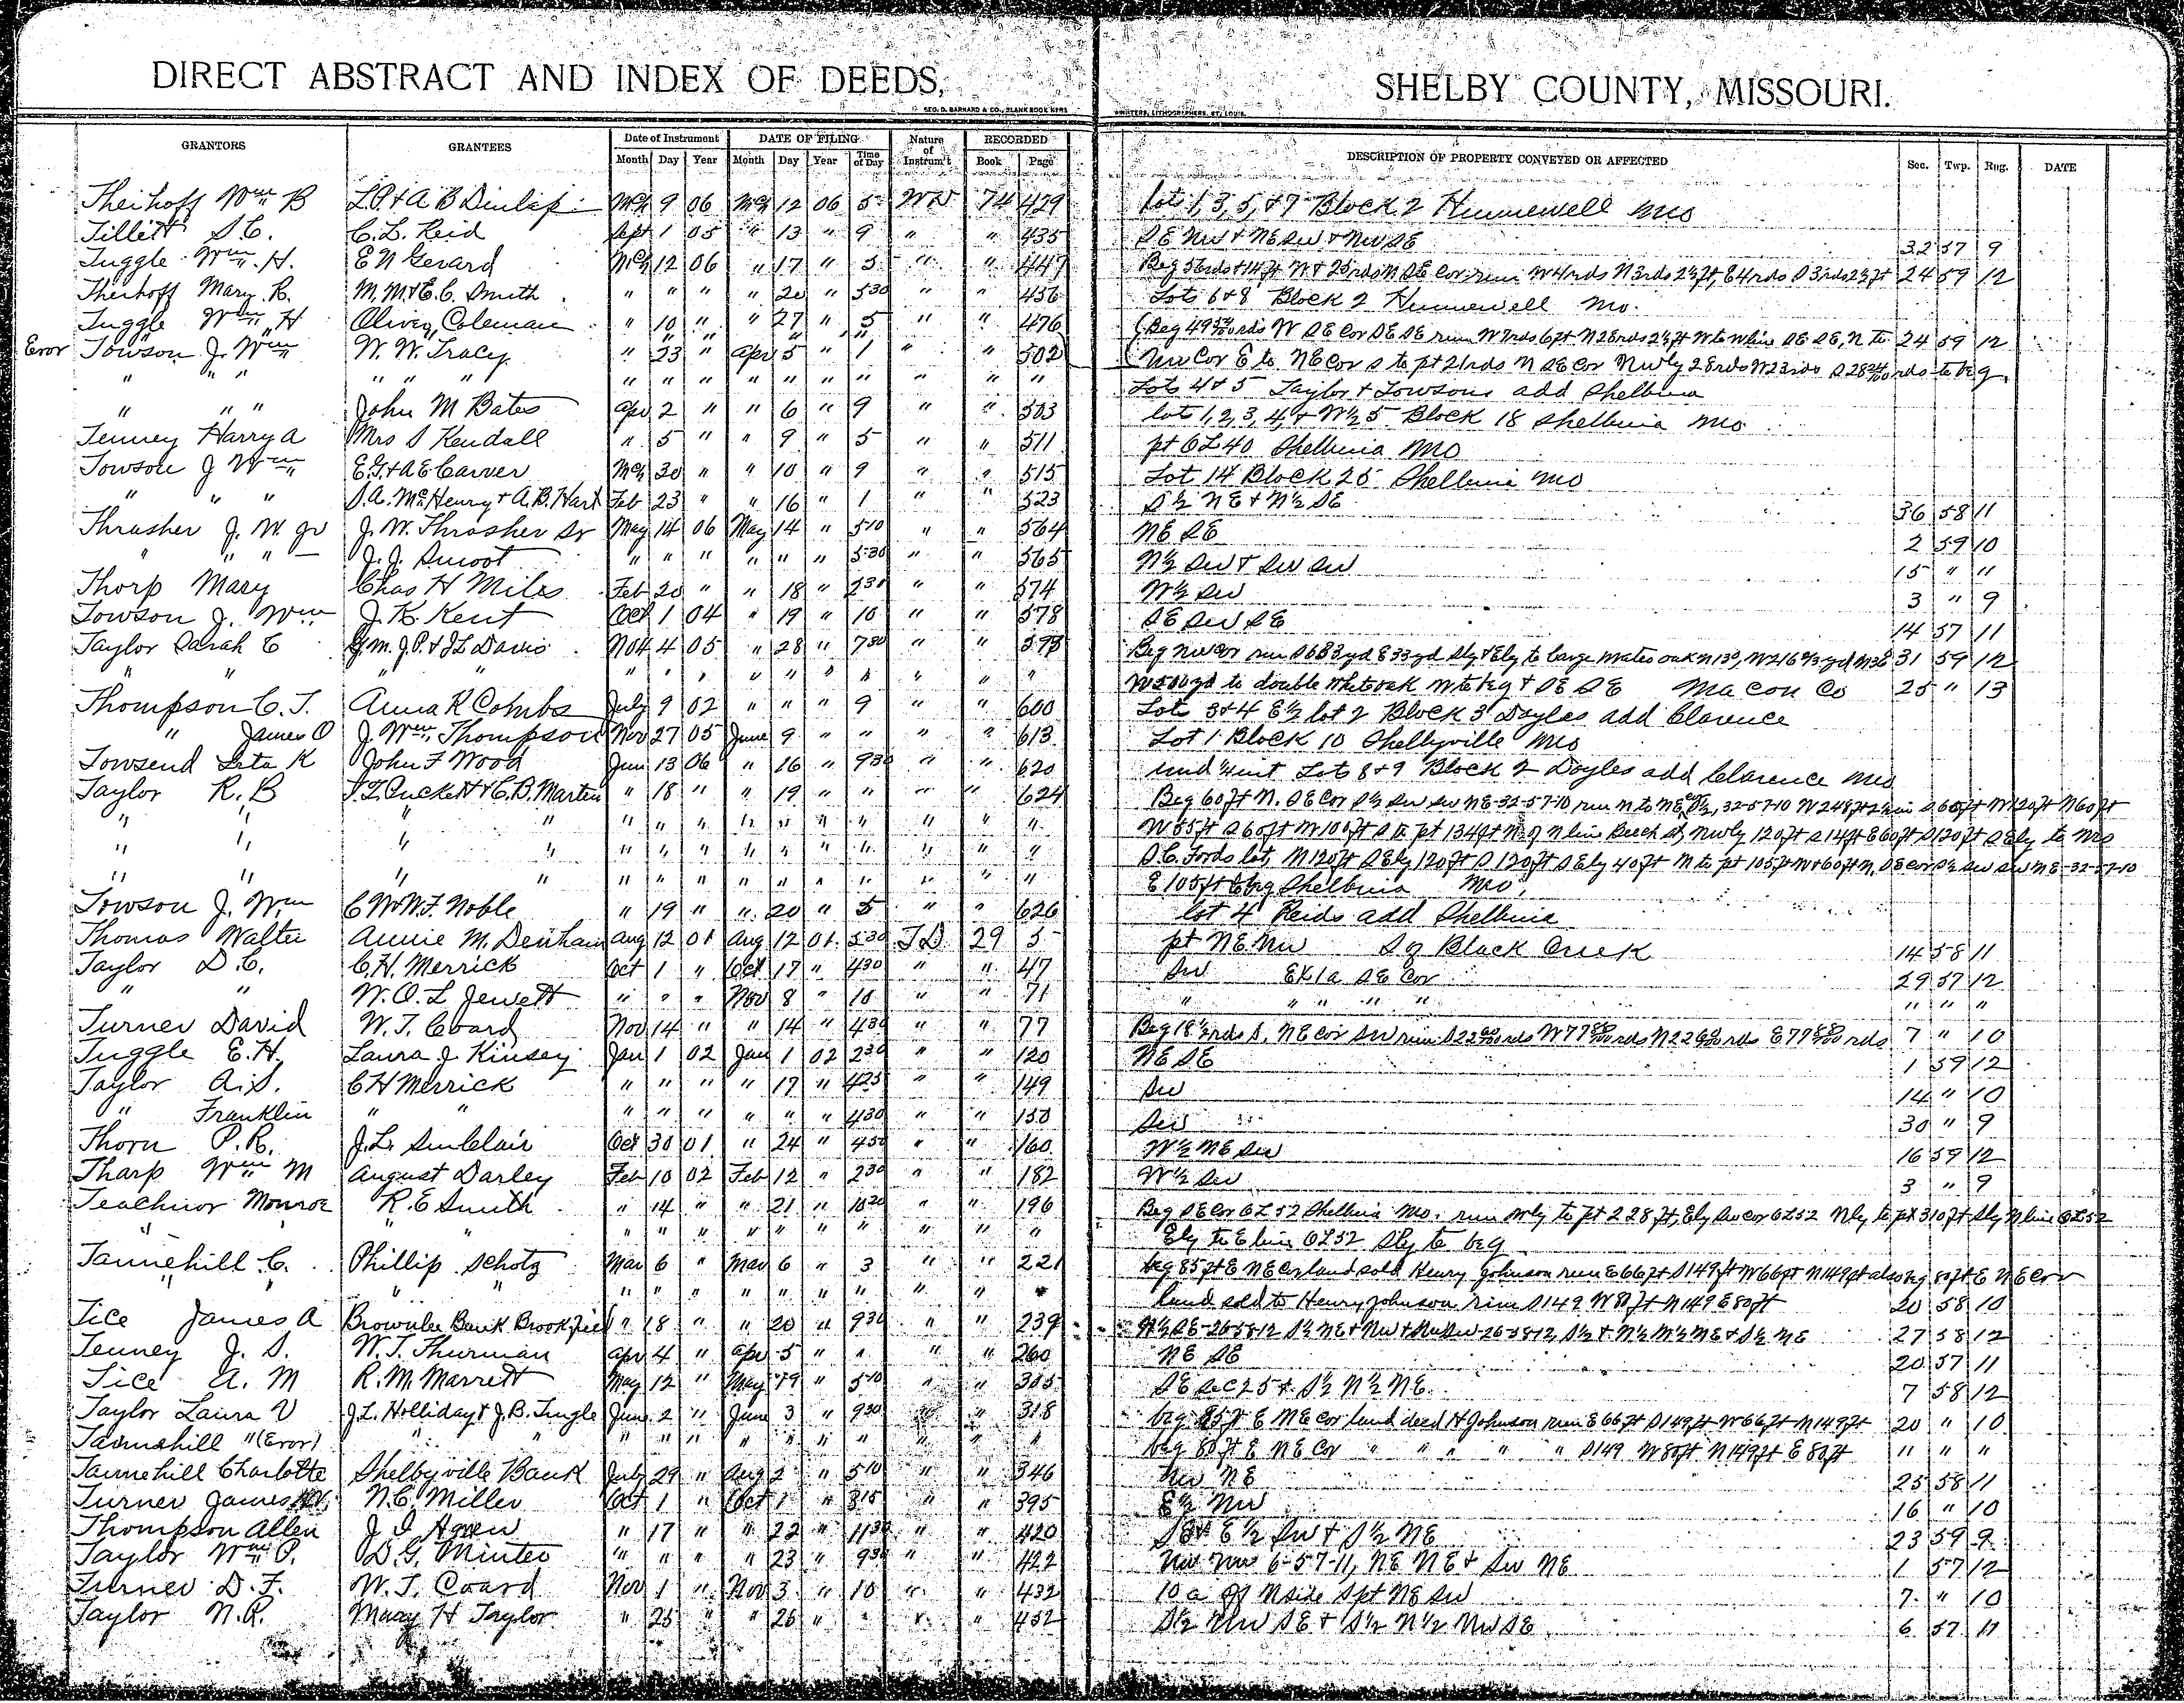 DIRECT ABSTRACT AND INDEX OF DEEDS, SHELBY COUNTY, MISSOURI.
GEO. D. BARNARD & CO., BLANK BOOK M'F'RS PRINTERS, LITHOGRAPHERS, ST. LOUIS.
GRANTORS GRANTEES Date of Instrument DATE OF FILING Nature of Instrum't RECORDED DESCRIPTION OF PROPERTY CONVEYED OR AFFECTED Sec. Twp. Rng. DATE
Month Day Year Month Day Year Time of Day Book Page
Theihoff Wm B L.P. & A B Dunlap Mch 9 06 Mch 12 06 5 WD 74 429 lots 1, 3, 5, & 7 Block 2 Hunnewell Mo
Tillett S.C. C.L. Reid Sept 1 05 " 13 " 9 " " 435 SE NW & NE SW & NW SE 32 57 9
Tuggle Wm H. E N Gerard Mch 12 06 " 17 " 5 " " 447 Beg 56rds & 14ft N & 25rds N SE Cor run W 4rds N 3rds 2½ft, E 4rds S 3rds 2½ft 24 59 12
Theihoff Mary R. M.M. & E.C. Smith " " " " 20 " 530 " " 456 Lots 6 & 8 Block 2 Hunnewell Mo.
Tuggle Wm H Oliver Coleman " 10 " " 27 " 5 " " 476 (Beg 49 rds W SE Cor SE SE run W 7rds 6ft N 28rds 2½ft W to W line SE SE, N to 24 59 12
Eror Towson J. Wm W. W. Tracy " 23 " Apr 5 " 1 " " 502 (NW Cor E to NE Cor S to pt 21rds N SE Cor NWly 28rds W 23rds S 28 rds to beg.
" " " " " " " " " " " " " " " " Lots 4 & 5 Taylor & Towsons add Shelbina
" " " John M Bates Apr 2 " " 6 " 9 " " 503 lots 1, 2, 3, 4, & W½ 5 Block 18 Shelbina Mo
Tenney Harry A Mrs S Kendall " 5 " " 9 " 5 " " 511 pt OL 40 Shelbina Mo
Towson J Wm E.G. & A E Carver Mch 30 " " 10 " 9 " " 515 Lot 14 Block 25 Shelbina Mo
" " " S.A. McHenry & A.B. Hart Feb 23 " " 16 " 1 " " 523 S½ NE & N½ SE 36 58 11
Thrasher J. W. Jr J. W. Thrasher Sr May 14 06 May 14 " 510 " " 564 NE SE 2 59 10
" " " J. J. Smoot " " " " " " 530 " " 565 N½ SW & SW SW 15 " 11
Thorp Mary Chas H Miles Feb 20 " " 18 " 230 " " 574 W½ SW 3 " 9
Towson J. Wm J. K. Kent Oct 1 04 " 19 " 10 " " 578 SE SW SE 14 57 11
Taylor Sarah E G.M. J.P. & J L Davis Nov 4 05 " 28 " 730 " " 593 Beg NW Cor run S 683yd E 33yd Sly & Ely to large oak N 13°, W 216 yd N 36° 31 59 12
" " " " " " " " " " " " W 500yd to double White oak to beg & SE SE Macon Co 25 " 13
Thompson C. T. Anna K Combs July 9 02 " " " 9 " " 600 Lots 3 & 4 E½ lot 2 Block 3 Doyles add Clarence
" James O J. Wm Thompson Nov 27 05 June 9 " " " " 613 Lot 1 Block 10 Shelbyville Mo
Towsend Leta K John F Wood Jun 13 06 " 16 " 930 " " 620 und ¼ int Lots 8 & 9 Block 2 Doyles add Clarence Mo
Taylor R. B Puckett & C. B. Martin " 18 " " 19 " " " " 624 Beg 60ft N. SE Cor S½ SW SW NE-32-57-10 run N to NE Cor S½, 32-57-10 W 248ft S 60ft W 120ft N 60ft
" " " " " " " " " " " " " " W 85ft S 60ft W 100ft S to pt 134ft N of N line Beech St, NWly 120ft S 14ft E 60ft S 120ft SEly to Mrs
" " " " " " " " " " " " " " S.C. Fords lot, N 120ft SEly 120ft S 120ft SEly 40ft N to pt 105ft W & 60ft N, SE Cor S½ SW SW NE-32-57-10
" " " " " " " " " " " " " " E 105ft to beg Shelbina Mo,
Towson J. Wm C W & N. F. Noble " 19 " " 20 " 5 " " 626 lot 4 Reids add Shelbina
Thomas Walter Annie M. Denham Aug 12 01 Aug 12 01 530 TD 29 5 pt NE NW S of Black Creek 14 58 11
Taylor D. C. C. H. Merrick Oct 1 " Oct 17 " 430 " " 47 SW EX 1a SE Cor 29 57 12
" " W. O. L Jewett " " " Nov 8 " 10 " " 71 " " " " " " " "
Turner David W. T. Coard Nov 14 " " 14 " 430 " " 77 Beg 18½rds S. NE Cor SW run S 22 rds W 77 rds N 22 rds E 77 rds 7 " 10
Tuggle E. H. Laura J. Kinsey Jan 1 02 Jan 1 02 230 " " 120 NE SE 1 59 12
Taylor A. S. C H Merrick " " " " 17 " 425 " " 149 SW 14 " 10
" Franklin " " " " " " " " 430 " " 150 SW 30 " 9
Thorn P. R. J. L. Sinclair Oct 30 01 " 24 " 450 " " 160 W½ NE SW 16 59 12
Tharp Wm M August Darley Feb 10 02 Feb 12 " 230 " " 182 W½ SW 3 " 9
Teachnor Monroe R. E Smith " 14 " " 21 " 1020 " " 196 Beg SE Cor OL 52 Shelbina Mo. run Wly to pt 228ft, Ely SW Cor OL 52 Nly to pt 310ft Sly N line OL 52
" " " " " " " " " " " " " Ely to E line OL 52 Sly to beg
Tannehill C. Phillip Schotz Mar 6 " Mar 6 " 3 " " 221 beg 85ft E NE Cor land sold Henry Johnson run E 66ft S 149ft W 66ft N 149ft also beg 80ft E NE Cor
" " " " " " " " " " " " land sold to Henry Johnson run S 149 W 80ft N 149 E 80ft 20 58 10
Tice James A Brownlee Bank Brookfield " 18 " " 20 " 930 " " 239 N½ SE-26-58-12 S½ NE & NW & SW 26-58-12, S½ & N½ N½ NE & S½ NE 27 58 12
Tenney J. S. W. T. Thurman Apr 4 " Apr 5 " " " " 260 NE SE 20 57 11
Tice A. M R. M. Marrett May 12 " May 19 " 510 " " 305 SE Sec 25 & S½ N½ NE 7 58 12
Taylor Laura V J. L. Holliday & J. B. Tingle June 2 " June 3 " 930 " " 318 beg 85ft E NE Cor land deed H Johnson run E 66ft S 149ft W 66ft N 149ft 20 " 10
Tannehill "(Eror) " " " " " " " " " " " " beg 80ft E NE Cor " " " " " S 149 W 80ft N 149ft E 80ft " " "
Tannehill Charlotte Shelbyville Bank July 29 " Aug 2 " 510 " " 346 NW NE 25 58 11
Turner James N. C. Miller Oct 1 " Oct 1 " 815 " " 395 E½ NW 16 " 10
Thompson Allen J. I. Agnew " 17 " " 22 " 1130 " " 420 SE & E½ SW & S½ NE 23 59 9
Taylor Wm P. D. G. Minter " " " " 23 " 930 " " 422 NW NW 6-57-11, NE NE & SW NE 1 57 12
Turner D. F. W. T. Coard Nov 1 " Nov 3 " 10 " " 432 10 a off N side S pt NE SW 7 " 10
Taylor N. R. Mary H Taylor " 25 " " 26 " " " " 452 S½ NW SE & S½ N½ NW SE 6 57 11